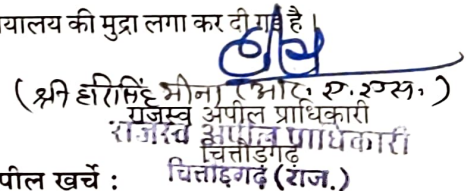 यालय की मुद्रा लगा कर दी गई है।
(श्री हरिसिंह मीना (आर. ए. एस.)
राजस्व अपील प्राधिकारी
राजस्व अपील प्राधिकारी
चित्तौड़गढ़
चित्तौड़गढ़ (राज.)
पील खर्चे :